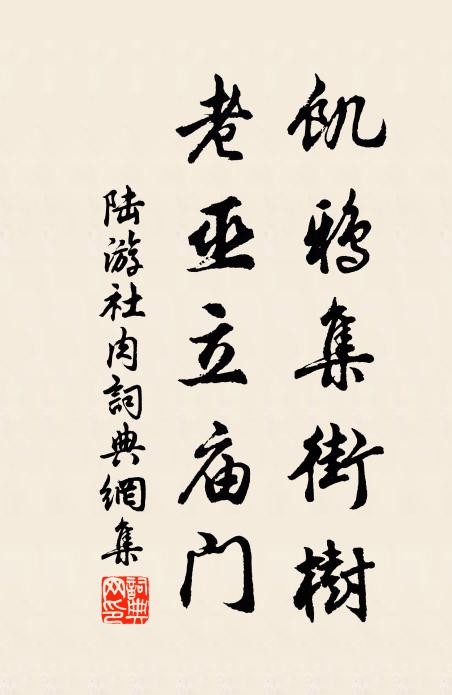 飢鸦集街樹
老巫立庙门
陆游社肉詞典網集
詞典网印